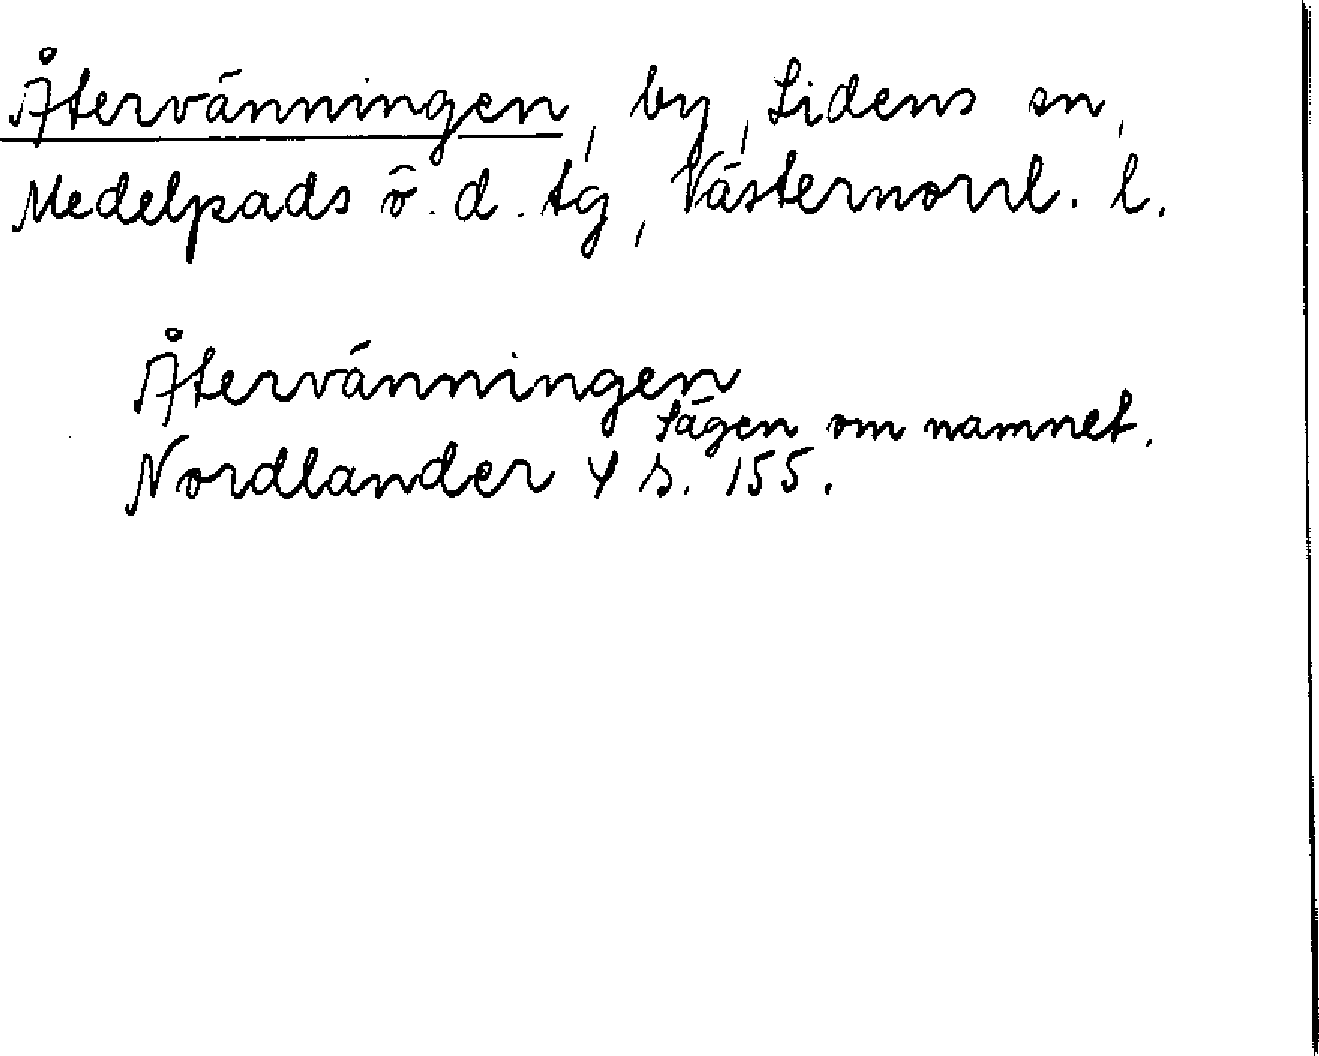 Återvänningen, by, Lidens sn,
Medelpads ö. d. tg, Västernorrl. l.
Återvänningen
Sägen om namnet.
Nordlander 4 s. 155.